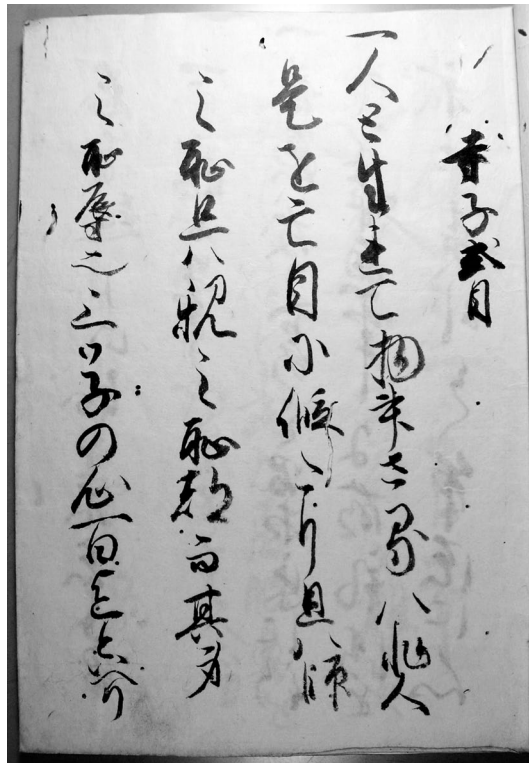 寺子式目
一人と生れて物书さる者ハ非人
是を亡目ニ候へたり且ハ師
之恥且ハ親之恥都而其身
之恥辱也三ツ子の心百迄と云へり